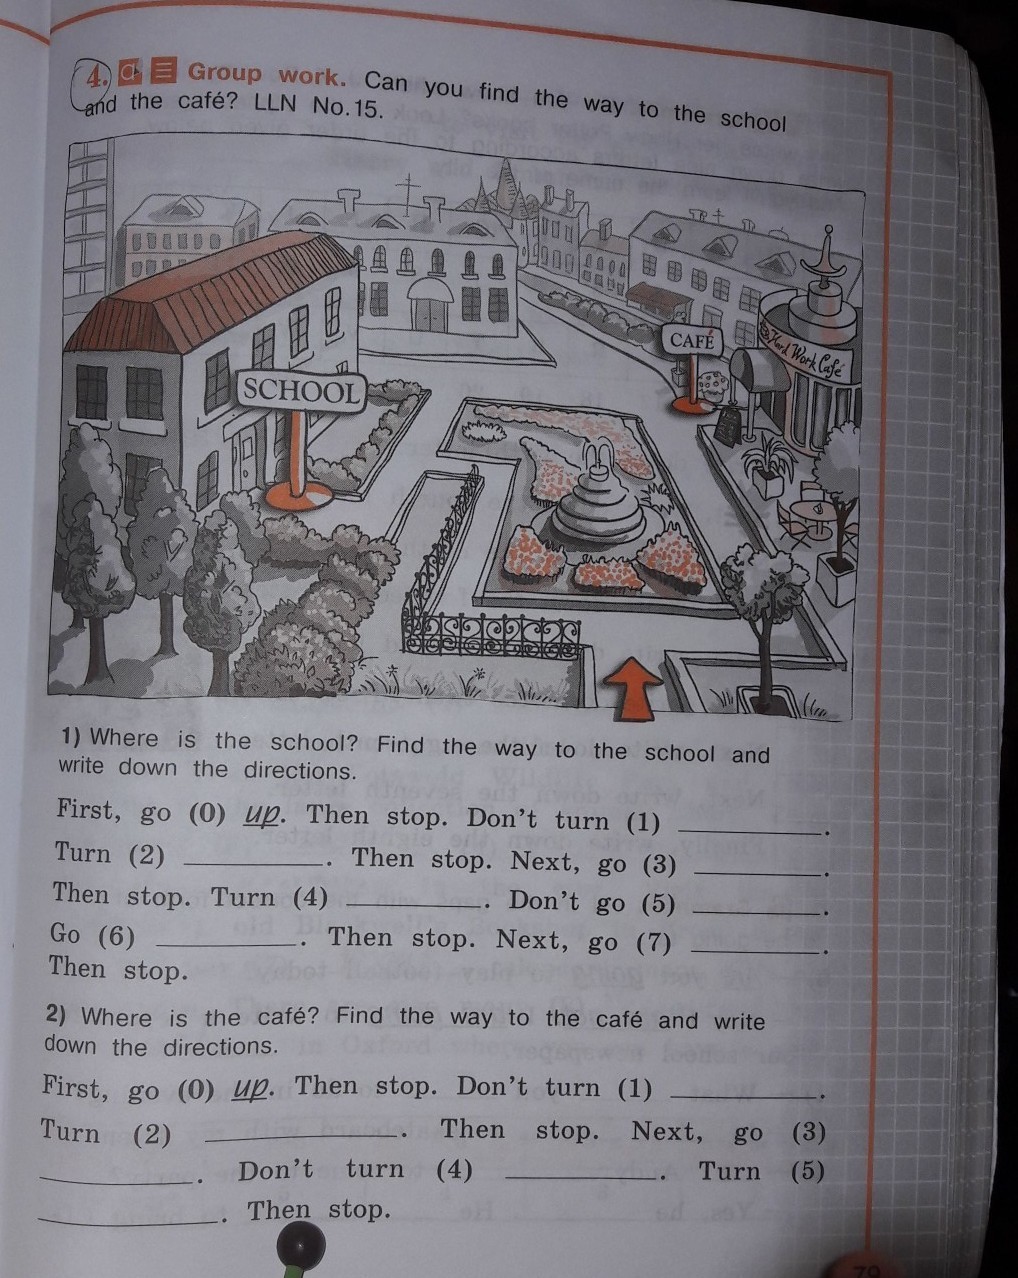 4. Group work. Can you find the way to the school
and the café? LLN No. 15.
SCHOOL
CAFÉ
Hard Work Café
1) Where is the school? Find the way to the school and
write down the directions.
First, go (0) up. Then stop. Don't turn (1) ____________.
Turn (2) ____________. Then stop. Next, go (3) ____________.
Then stop. Turn (4) ____________. Don't go (5) ____________.
Go (6) ____________. Then stop. Next, go (7) ____________.
Then stop.
2) Where is the café? Find the way to the café and write
down the directions.
First, go (0) up. Then stop. Don't turn (1) ____________.
Turn (2) ____________. Then stop. Next, go (3)
____________. Don't turn (4) ____________. Turn (5)
____________. Then stop.